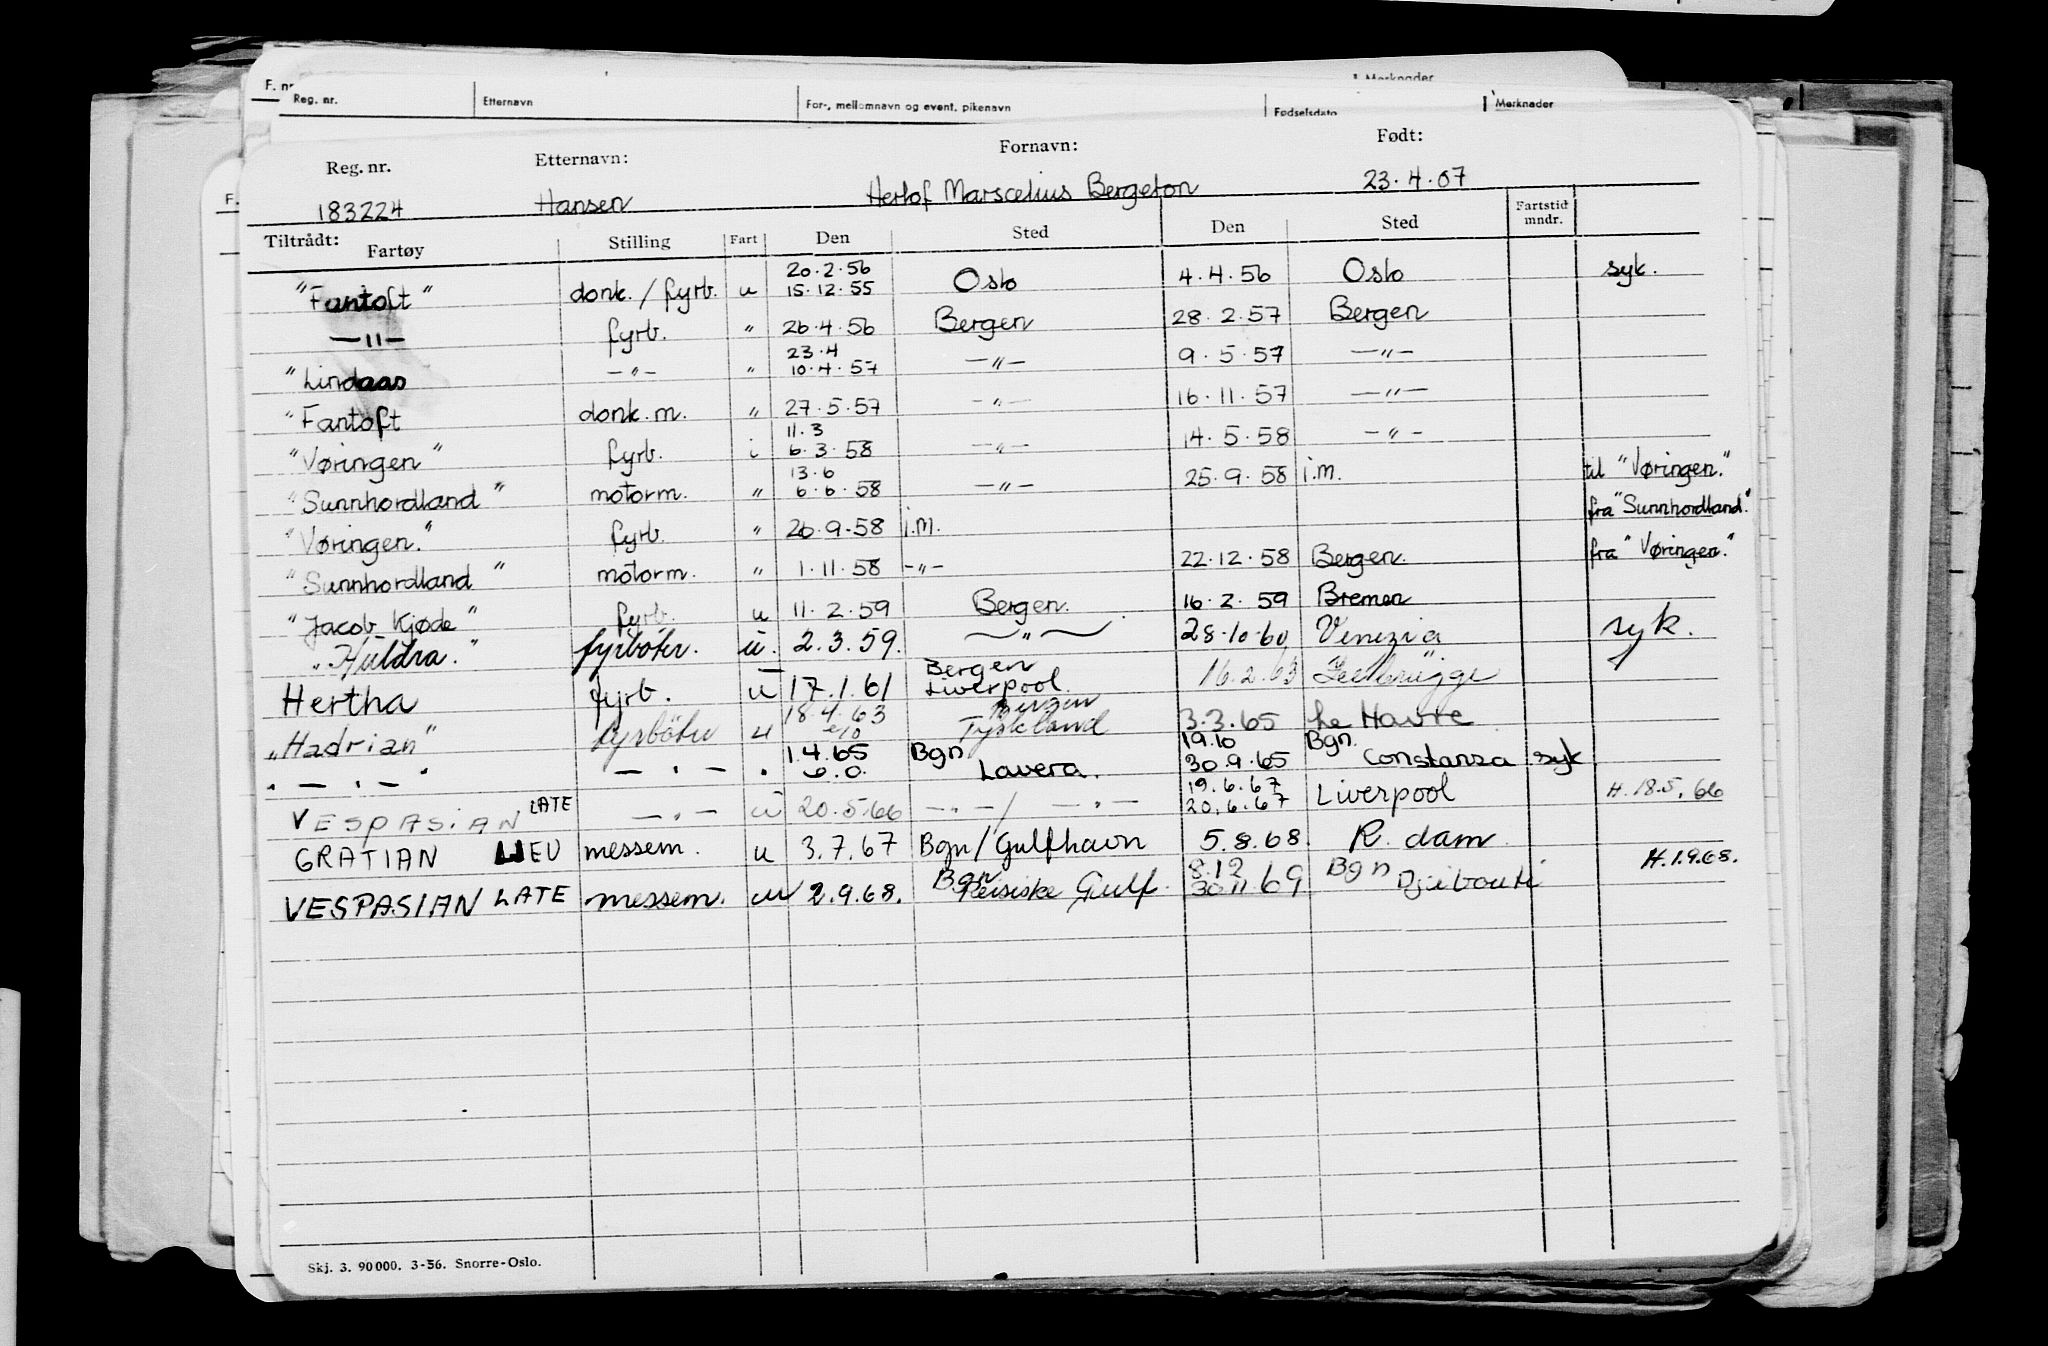 F. nr
Merknader
Reg. nr. Etternavn For-, mellomnavn og event. pikenavn Fødselsdato Merknader
F.
Reg. nr. Etternavn: Fornavn: Født:
183224 Hansen Herlof Marscelius Bergeton 23.4.07
Tiltrådt: Fartøy Stilling Fart Den Sted Den Sted Fartstid mndr.
20.2.56
"Fantoft" donk./fyrb. u 15.12.55 Oslo 4.4.56 Oslo syk.
—"— fyrb. " 26.4.56 Bergen 28.2.57 Bergen
23.4
"Lindaas —"— " 10.4.57 —"— 9.5.57 —"—
"Fantoft donk.m. " 27.5.57 —"— 16.11.57 —"—
11.3
"Vøringen" fyrb. i 6.3.58 —"— 14.5.58 —"—
13.6
"Sunnhordland" motorm. " 6.6.58 —"— 25.9.58 i.m. til "Vøringen."
"Vøringen." fyrb. " 26.9.58 i.m. fra "Sunnhordland."
"Sunnhordland" motorm. " 1.11.58 —"— 22.12.58 Bergen. fra "Vøringen."
"Jacob Kjøde" fyrb. u 11.2.59 Bergen. 16.2.59 Bremen
"Huldra." fyrbøter. u. 2.3.59. —"— 28.10.60 Venezia syk.
Bergen
Hertha fyrb. u 17.1.61 Liverpool. 16.2.63 Zeebrügge
Bergen
"Hadrian" fyrböter u 18.4.63 Tyskland 3.3.65 Le Havre
e/o
1.4.65 Bgn 19.10 Bgn.
" — " — " — " — . e.o. Lavera. 30.9.65 Constanza syk
19.6.67
VESPASIAN LATE — " — u 20.5.66 — " — / — " — 20.6.67 Liverpool H. 18.5.66
GRATIAN LIEU messem. u 3.7.67 Bgn/Gulfhavn 5.8.68. R.dam
Bgn 8.12 Bgn
VESPASIAN LATE messem. u 2.9.68. Persiske Gulf. 30.11.69 Djibouti H.1.9.68.
Skj. 3. 90 000. 3-56. Snorre-Oslo.